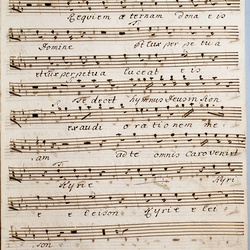 Requiem æternam dona eis
Domine et lux perpetua
et lux perpetua luceat eis
Te decet hymnus Deus in Sion
exaudi orationem me
am ad te omnis Caro veniet
Kyrie Kyri
e eleison Kyrie elei
son